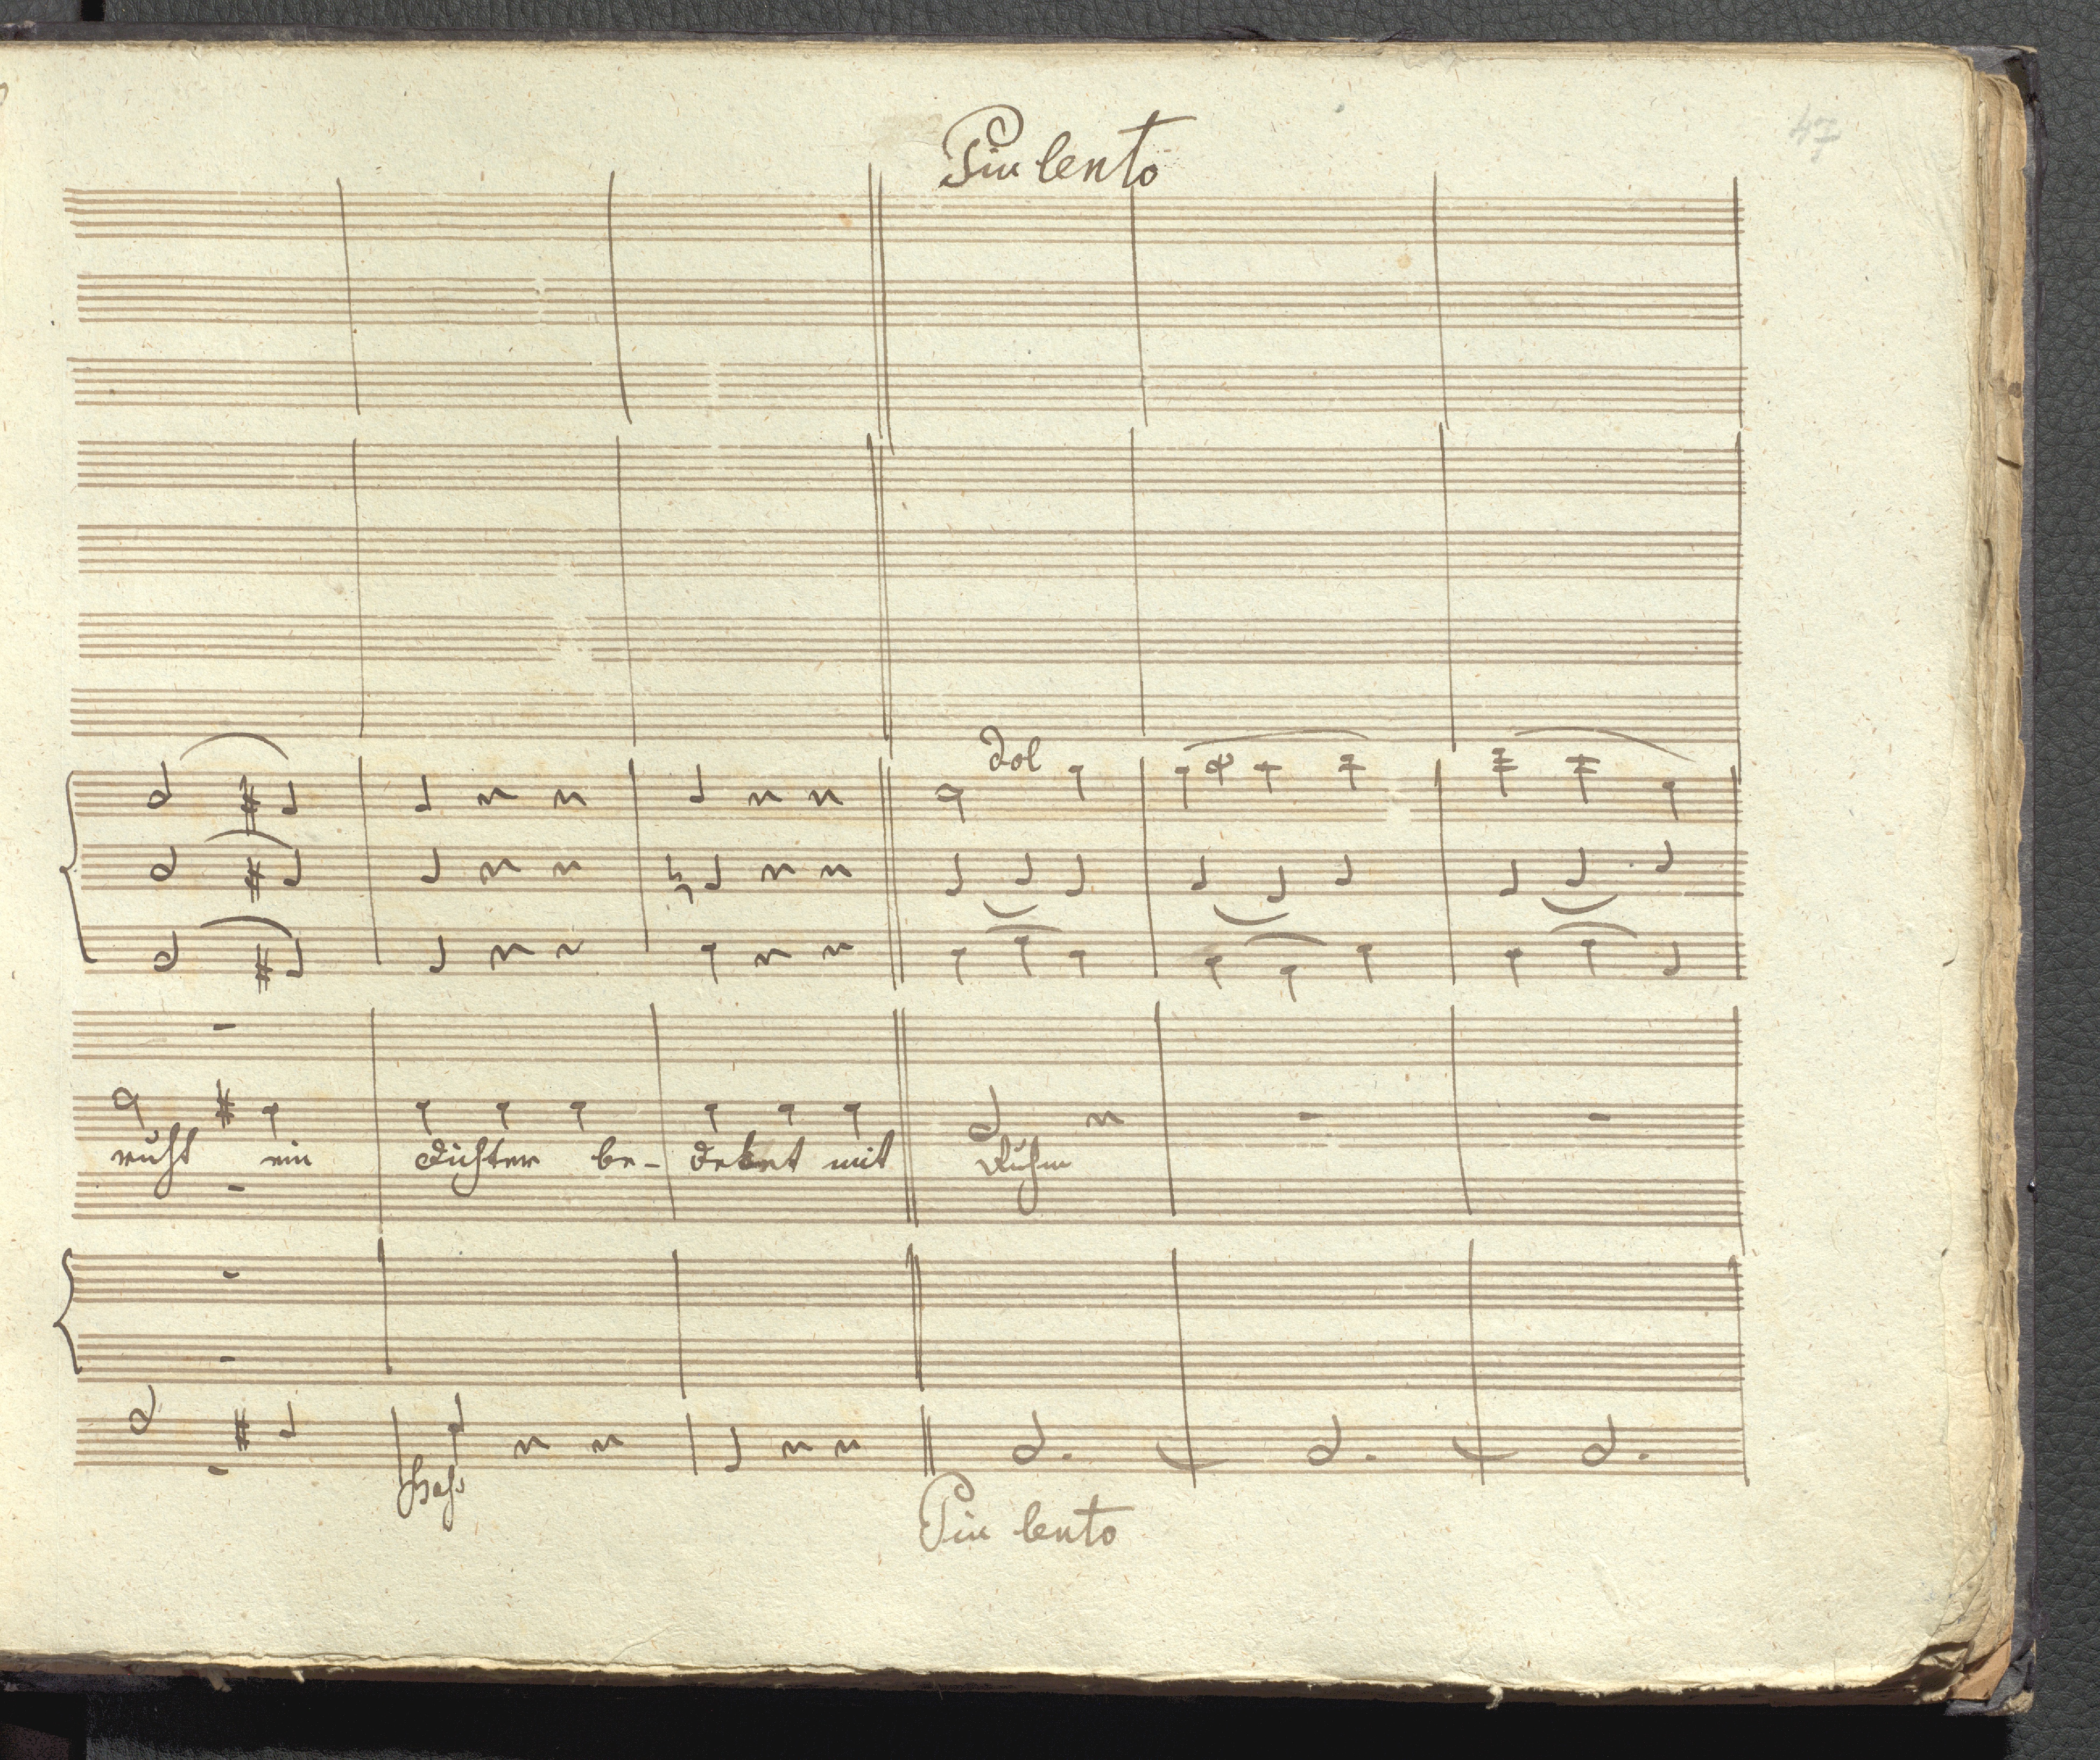 47
Piu lento
dol
ruht ein Dichter be- decket mit Ruhm
Bass
Piu lento